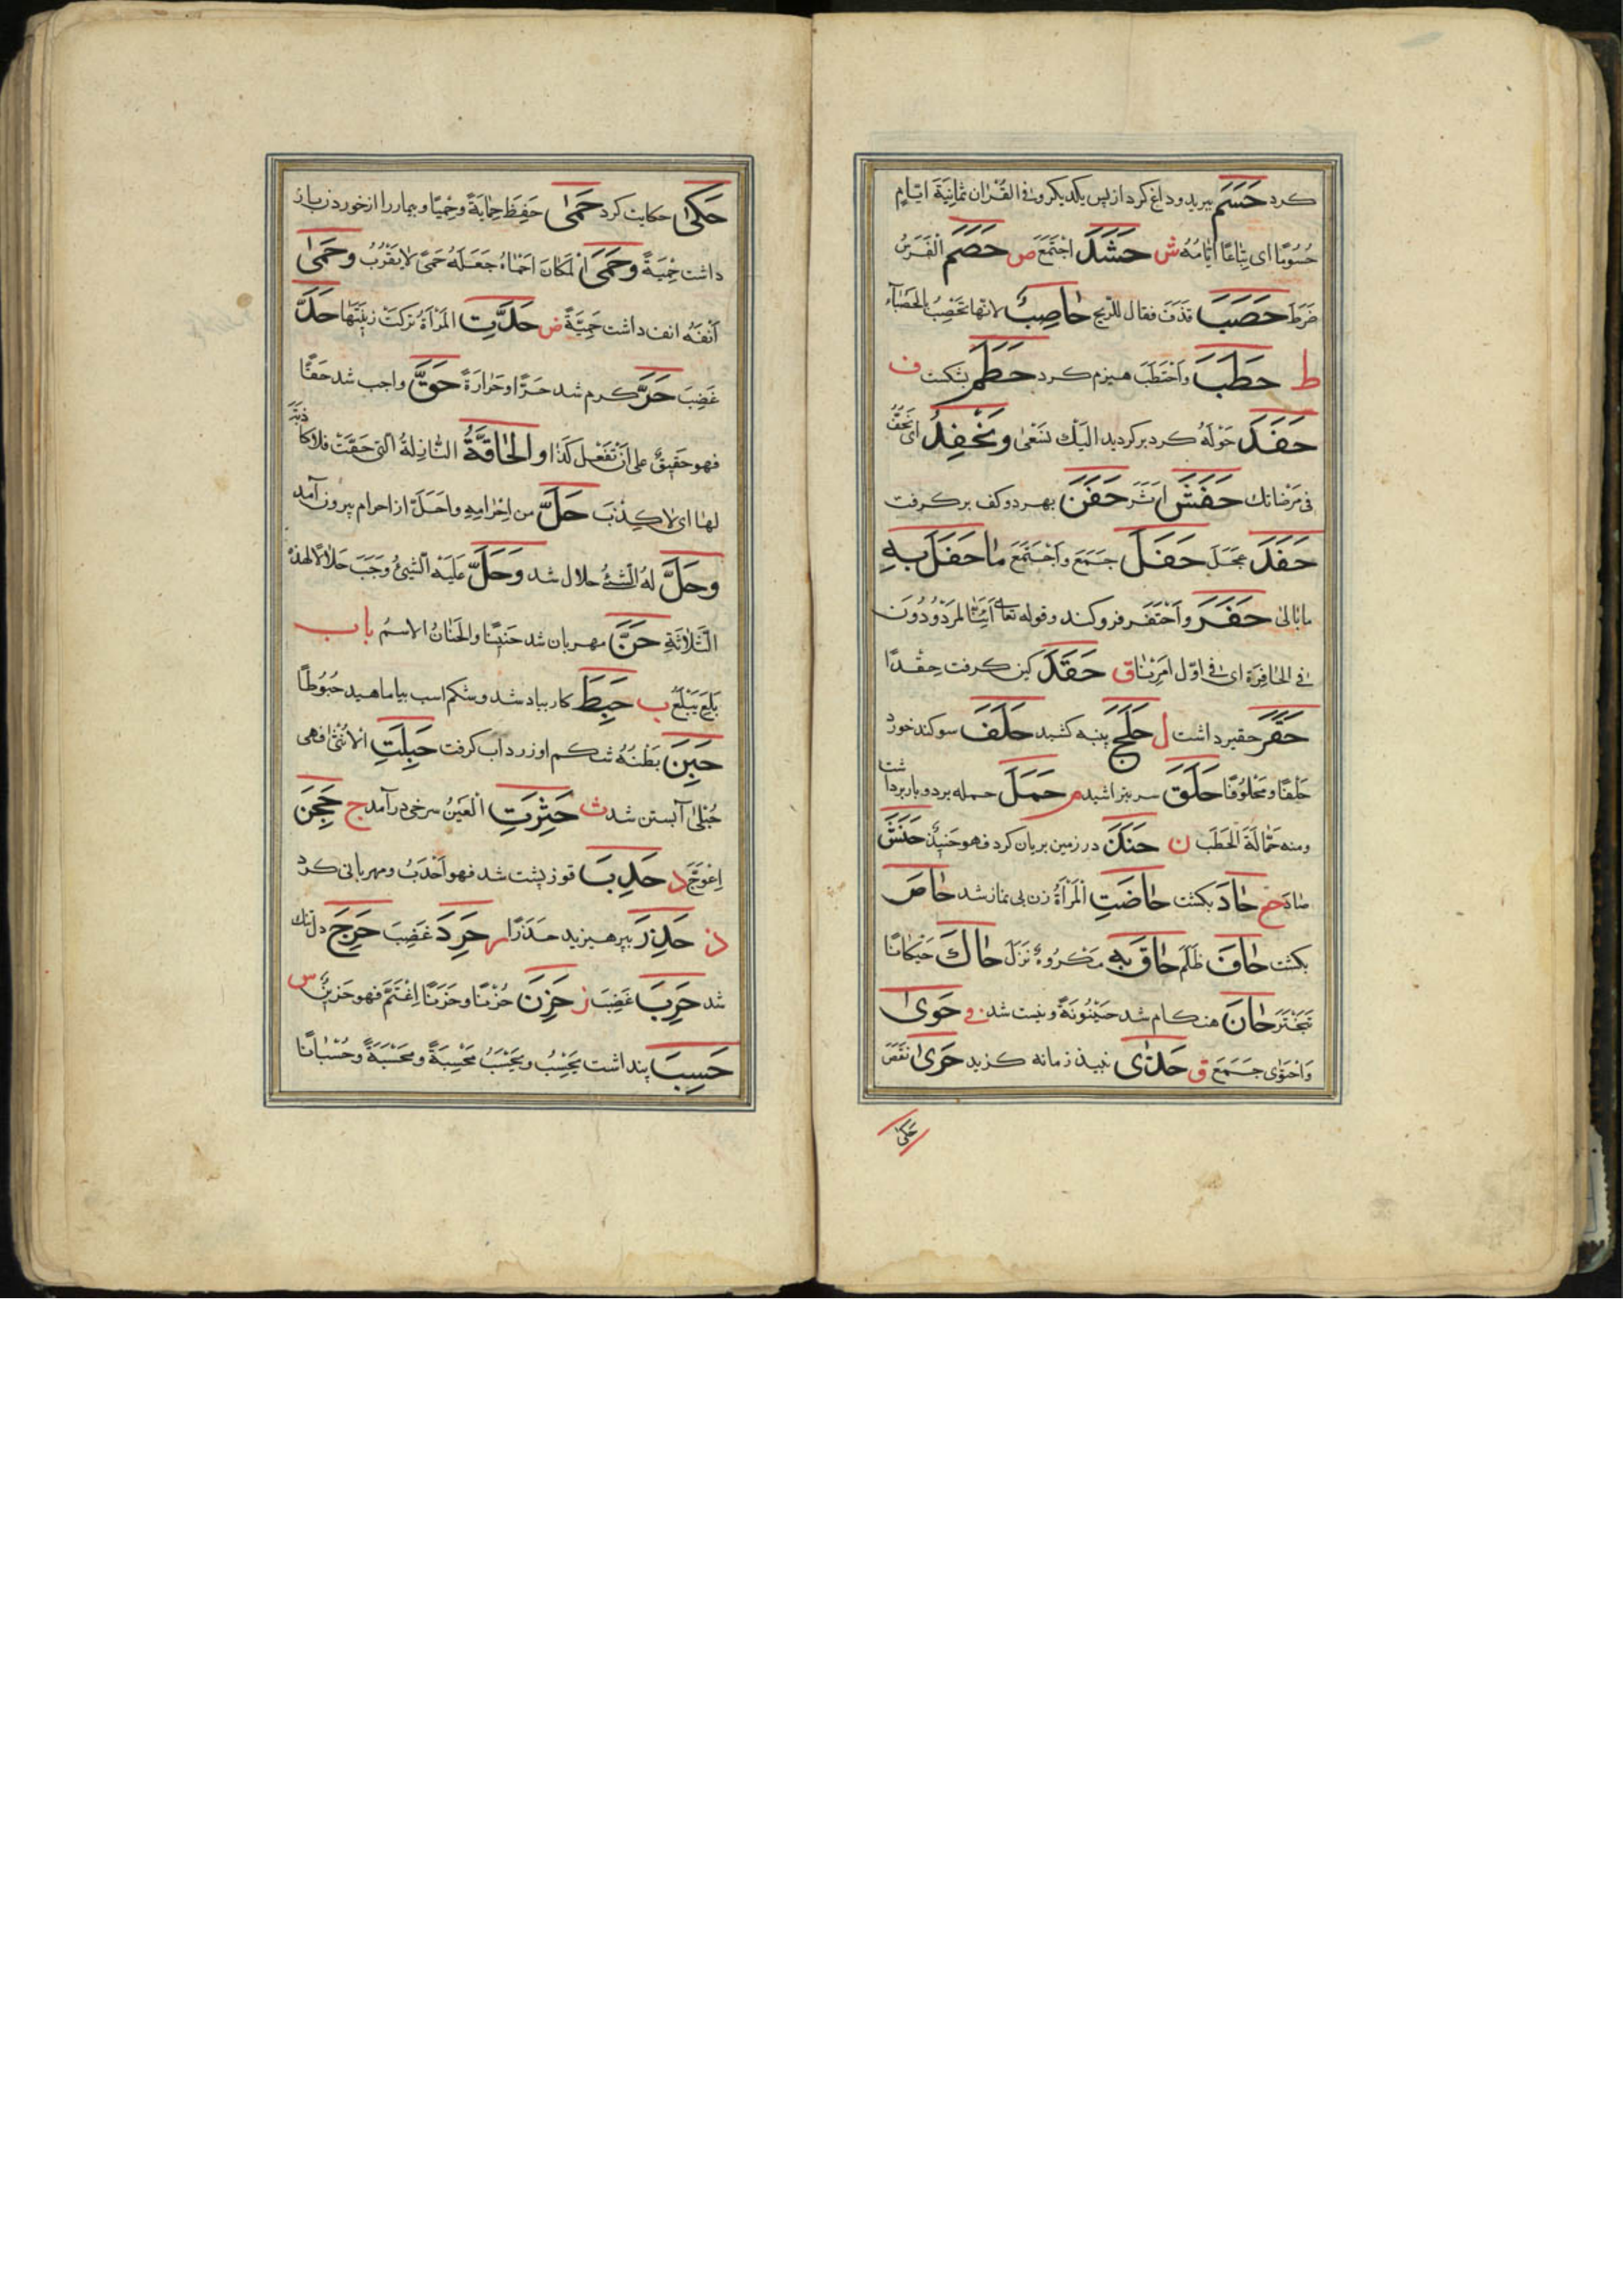 کرد حَسَمَ ببرید و داغ کرد از پس یکدیکر و فی القُرْان ثَمانِیَةَ ایّامٍ
حُسُومًا ای تِباعًا ایّامُهُ ش حَشَدَ اجْتَمَعَ ص حَصَمَ الْفَرَسُ
ضَرَطَ حَصَبَ قَذَفَ فقال للرّیحِ حاصِبٌ لانّها تَحْصِبُ بِالحَصْبَآءِ
ط حَطَبَ وَاحْتَطَبَ هیزم کرد حَطَمَ بشکست ف
حَفَدَ حَوْلَهُ کرد برکردید الَیْكَ نَسْعٰی وَنَحْفِدُ ای نَخِفُّ
فی مَرْضاتك حَفَشَ حَفَنَ بهر دو کف بر کرفت
حَفَدَ عَجَّلَ حَفَلَ جَمَعَ وَاَجْتَمَعَ ماحَفَلَ بِهِ
مابَالیٰ حَفَرَ وَاَحْتَفَرَ فرو کند و قوله تعالی اَئِنّا لَمَرْدُودُونَ
فی الحافِرَةِ ای فی اوّل اَمْرِنا ق حَقَدَ کین کرفت حِقْدًا
حَقَرَ حقیر داشت ل حَلَجَ پنبه کشید حَلَفَ سوکند خورد
حَلْفًا و مَحْلُوفًا حَلَقَ سر بتراشید م حَمَلَ حمله برد و بار برداشت
ومنه حَمّالَةَ الحَطَبِ ن حَنَذَ در زمین بریان کرد فهو حَنیذٌ حَنَشَ
صادَ ح حادَ بکشت حاضَتِ الْمَرْاَةُ زن بی نماز شد حاصَ
بکشت حافَ ظَلَمَ حاقَ بِهِ مَکْرُوهٌ نَزَلَ حاكَ حَیَکانًا
تَبَخْتَرَ حانَ هنکام شد حَیْنُونَةً و نیست شد و حَوٰی
وَاحْتَوٰی جَمَعَ ق حَذٰی نبیذ زمانه کزید حَرٰی نَقَصَ
حَکیٰ
حَکیٰ حکایت کرد حَمیٰ حَفِظَ حِمایَةً وحِمْیًا و بیمار را از خوردن باز
داشت حِمْیَةً وحَمَی الْمَکانَ اَحْماهُ جَعَلَهُ حَمیً لایَقْرُبُ وحَمیٰ
اَنْفَهُ انف داشت حَمِیَّةً ض حَدَّتِ المَرْاَةُ تَرَکَتْ زینَتَها حَدَّ
غَضِبَ حَرَّ کرم شد حَرًّا وحَرارَةً حَقَّ واجب شد حَقًّا
فهو حَقیقٌ علی اَنْ تَفْعَلَ کَذا والحاقَّةُ النّازِلَةُ الّتی حَقَّتْ فلا کاذِبَةَ
لَها ای لا کِذْبَ حَلَّ من اِحْرامِهِ واَحَلَّ از احرام بیرون آمد
وحَلَّ لَهُ الشّئُ حلال شد وحَلَّ عَلَیْهِ الشّیئُ وَجَبَ حَلالًا لهذه
الثَّلاثَةِ حَنَّ مهربان شد حَنینًا والحَنانُ الاسمُ باب
بَلِعَ یَبْلَعُ ب حَبِطَ کار بباد شد و شکم اسب بیاماهید حُبُوطًا
حَبِنَ بَطْنُهُ شکم او زرداب کرفت حَبِلَتِ الاُنْثٰی فهی
حُبْلیٰ آبستن شد ث حَثِرَتِ الْعَیْنُ سرخی در آمد ج حَجِنَ
اِعْوَجَّ د حَدِبَ قوز پشت شد فهو اَحْدَبُ و مهربانی کرد
ذ حَذِرَ بپرهیزید حَذَرًا ر حَرِدَ غَضِبَ حَرِجَ دل تنك
شد حَرِبَ غَضِبَ ز حَزِنَ حُزْنًا وحَزَنًا اِغْتَمَّ فهو حَزینٌ س
حَسِبَ پنداشت یَحْسِبُ ویَحْسَبُ مَحْسِبَةً ومَحْسَبَةً وحُسْبانًا